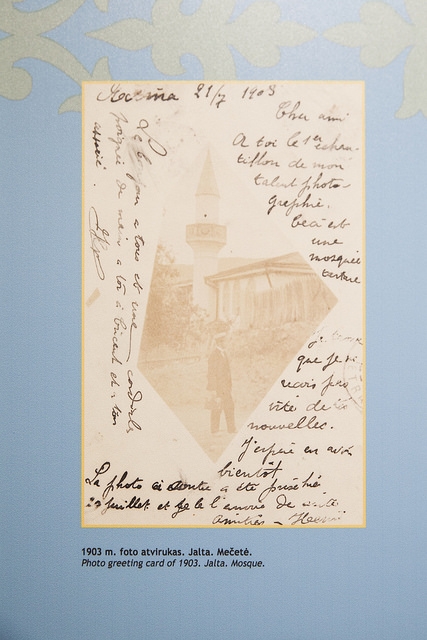 21/7 1903
Cher ami
A toi le 1er échan-
tillon de mon
talent photo-
graphie.
Ceci est
une
mosquée
tartare
que je
pas
vite de
nouvelles.
J'espère en avoir
bientôt
La photo ci contre a été
juillet et je te l'envoie de suite
Amitiés - Henri
a tous et une cordiale
poignée de mains a toi a Vincent et a ton
associé.
1903 m. foto atvirukas. Jalta. Mečetė.
Photo greeting card of 1903. Jalta. Mosque.